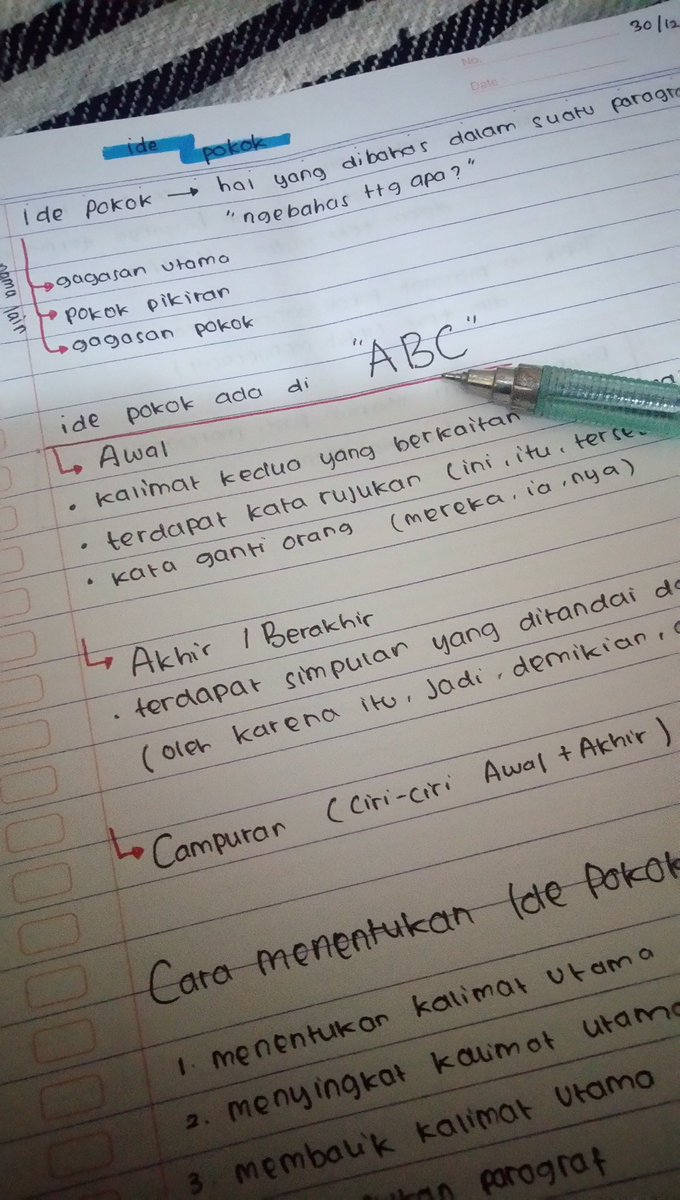 30/12
No.
Date
ide pokok
ide pokok → hal yang dibahas dalam suatu paragra
"ngebahas ttg apa?"
nama lain
gagasan utama
pokok pikiran
gagasan pokok
ide pokok ada di "ABC"
Awal
• kalimat kedua yang berkaitan
• terdapat kata rujukan (ini, itu, terse
• kata ganti orang (mereka, ia, nya)
Akhir / Berakhir
• terdapat simpulan yang ditandai de
(oleh karena itu, jadi, demikian,
Campuran (Ciri-ciri Awal + Akhir)
Cara menentukan Ide Pokok
1. menentukan kalimat utama
2. menyingkat kalimat utama
3. membalik kalimat utama
paragraf